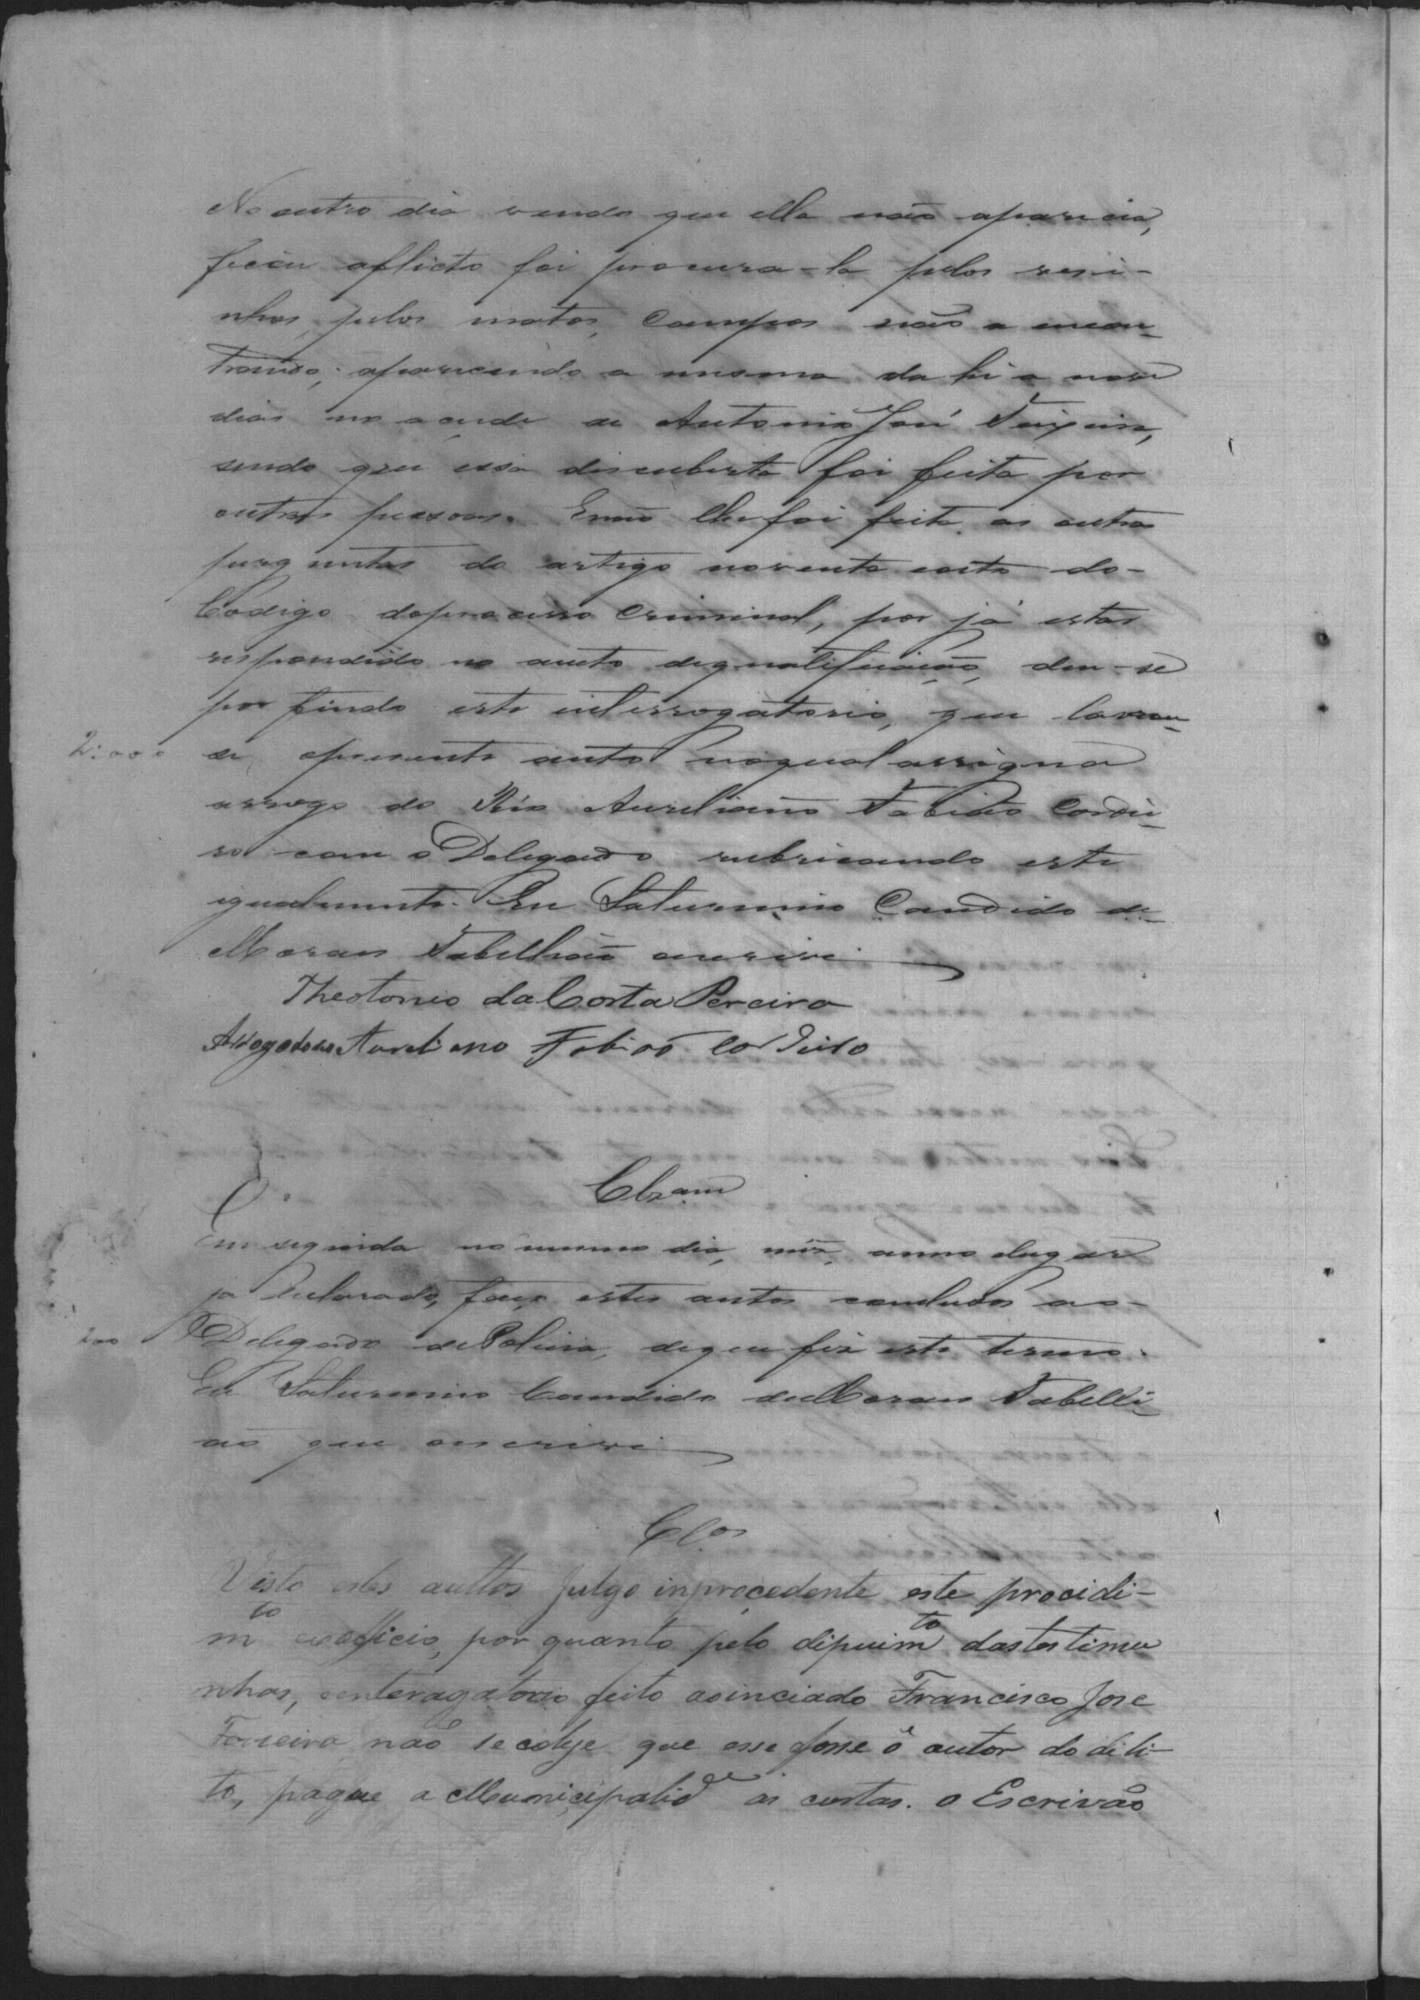 No outro dia vendo que ella não aparecia,
ficou aflicto foi procura-la pelos vesi-
nhos, pelos matos, Campos não a encon-
trando; aparecendo a mesma dahi a nove
dias no açude de Antonio José Teixeira,
sendo que essa discuberta foi feita por
outras pessoas. E não lhe foi feita as outras
perguntas do artigo noventa e oito do-
Codigo do processo Criminal, por já estar
respondido no auto de qualificação, deu-se
por findo este interrogatorio, que lavrou-
2:000 se, o presente auto no qual assigna
arrogo do Réo Aureliano Fabião Cordei-
ro com o Delegado rubricando este
igualmente. Eu Saturnino Candido de-
Moraes Tabellião escrevi
Theotonio da Costa Pereira
Aureliano Fabião Cordeiro
Clzam
Em seguida no mesmo dia, mês, anno elugar
ja declarado, faço estes autos concluzos ao-
200 Delegado de Policia, de que fiz este termo.
Eu Saturnino Candido de Moraes Tabelli-
ão que escrevi
Clos
Visto estes auttos julgo inprocedente este procidi-
mto exofficio, por quanto pelo dipuimto das testimu
nhas, enteragatorio feito ao inciado Francisco Jose
não se colije que esse fosse o autor do dili-
to, pague a Municipalide as custas. o Escrivão